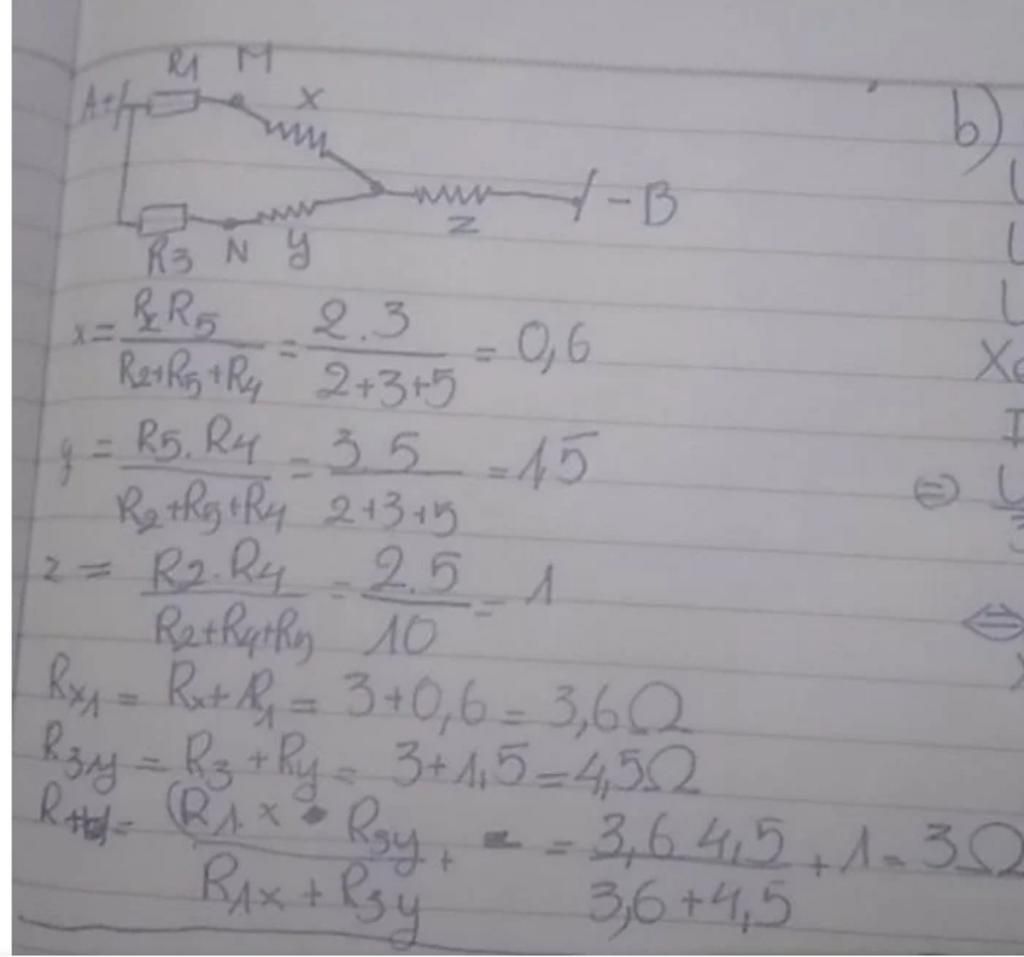 R1 M
A+ X
-B
Z
R3 N y
x = R2 R5 / R2+R5+R4 = 2.3 / 2+3+5 = 0,6
y = R5.R4 / R2+R5+R4 = 3 5 / 2+3+5 = 1,5
z = R2.R4 / R2+R4+R5 = 2.5 / 10 = 1
Rx1 = Rx+R1 = 3+0,6 = 3,6Ω
R3y = R3+Ry = 3+1,5 = 4,5Ω
(R1x . R3y / R1x + R3y + = 3,6 4,5 / 3,6+4,5 + 1 = 3Ω
b)